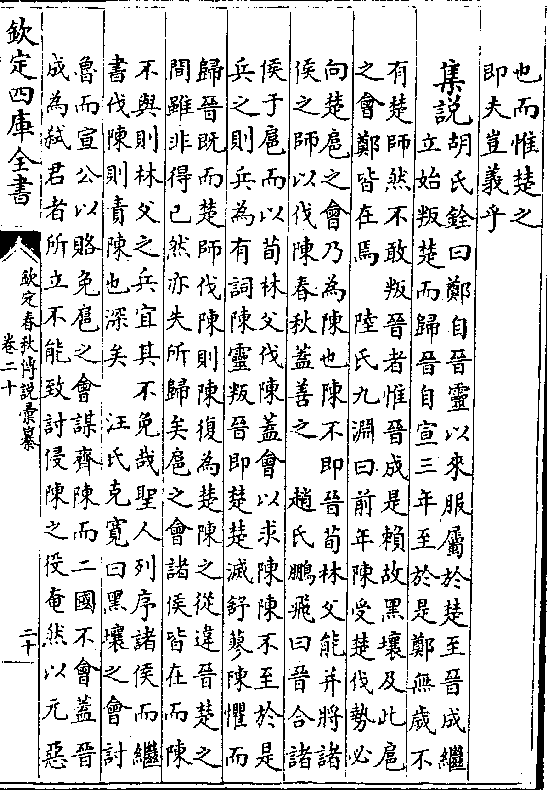 也而惟楚之
即夫豈義乎
集説胡氏銓曰鄭自晉靈以來服屬於楚至晉成繼
立始叛楚而歸晉自宣三年至於是鄭無歳不
有楚師然不敢叛晉者惟晉成是賴故黑壤及此扈
之會鄭皆在焉 陸氏九淵曰前年陳受楚伐勢必
向楚扈之會乃為陳也陳不即晉荀林父能并將諸
侯之師以伐陳春秋蓋善之 趙氏鵬飛曰晉合諸
侯于扈而以荀林父伐陳蓋會以求陳陳不至於是
兵之則兵為有詞陳靈叛晉即楚楚滅舒蓼陳懼而
歸晉既而楚師伐陳則陳復為楚陳之從違晉楚之
間雖非得已然亦失所歸矣扈之會諸侯皆在而陳
不與則林父之兵宜其不免哉聖人列序諸侯而繼
書伐陳則責陳也深矣 汪氏克寛曰黑壤之會討
魯而宣公以賂免扈之會謀齊陳而二國不會蓋晉
成為弑君者所立不能致討侵陳之役奄然以元惡
欽定四庫全書
欽定春秋傳説彙纂
卷二十
二十